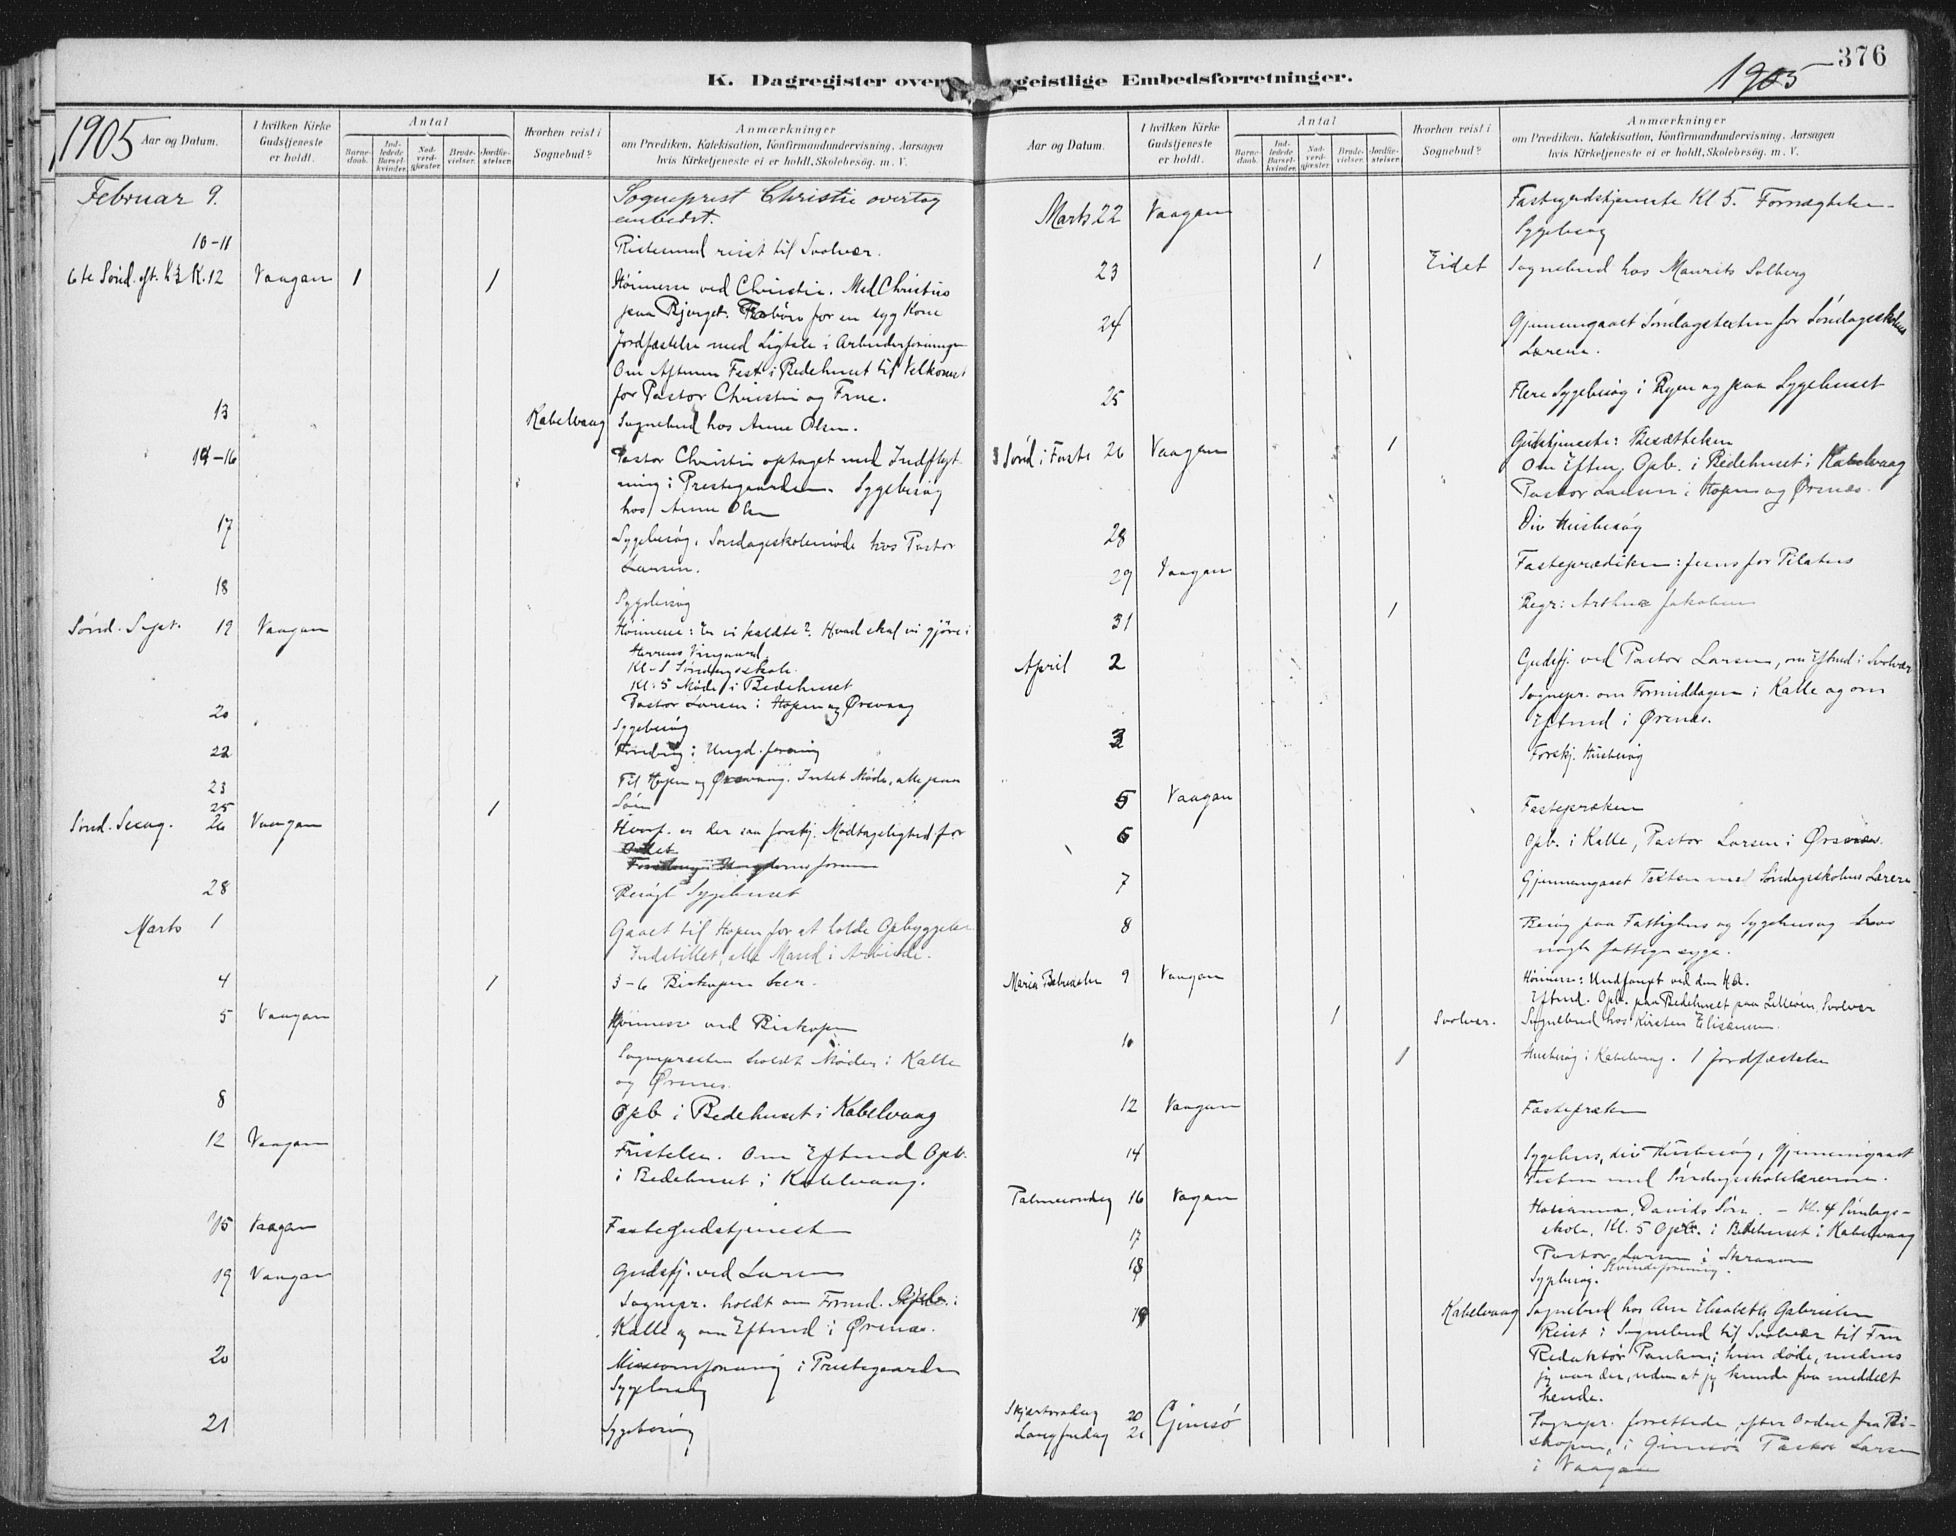 K. Dagregister over geistlige Embedsforretninger.
376
1905
1905
Aar og Datum.
I hvilken Kirke Gudstjeneste er holdt.
Antal
Barnedaab.
Indledede Barselkvinder.
Nadverdgjæster
Brudevielser.
Jordfæstelser
Hvorhen reist i Sognebud?
Anmærkninger
om Prædiken, Katekisation, Konfirmandundervisning, Aarsagen
hvis Kirketjeneste ei er holdt, Skolebesøg. m. V.
Februar 9. Sogneprest Christie overtog
embedet.
10-11 reist til Svolvær.
6te Sønd. eft. H 3 K. 12 Vaagan 1 1 ved Christie. Med Christus
paa Bjerget. Forbön for en syg Kone
Jordfæstelse med Ligtale i Arbeiderforeningen
Om Aftenen Fest i Bedehuset til Velkomst
for Pastor Christie og Frue.
13 Kabelvaag Sognebud hos Anne Olsen.
14-16 Pastor Christie optaget med Indflyt-
ning i Prestegaarden. Sygebesøg
hos Anne Olsen
17 Sygebesøg, Søndagsskolemøde hos Pastor
Larsen.
18 Sygebesøg
Sønd. Sept. 19 Vaagan Höimesse: Er vi kaldte? Hvad skal vi gjöre i
Herrens Vingaard.
Søndagsskole.
Kl. 5 Møde i Bedehuset
Pastor Larsen i Hopen og Ørsvaag
20 Sygebesøg
22 Foredrag i Ungd. forening
23 Til Hopen og Ørsvaag. Intet Møde, alle paa
Söen
25 1
Sønd. Sexag. 26 Vaagan Hvorf. er der saa forskj. Modtagelighed for
Ordet
28 Besøgt Sygehuset
Marts 1 Gaaet til Hopen for at holde Opbyggelse
Indstillet, alle Mand i Arbeide.
4 1 3-6 Biskopen her.
5 Vaagan Höimesse ved Biskopen
Sognepresten holdt Møder i Kalle
og Ørsnes.
8 Opb. i Bedehuset i Kabelvaag
12 Vaagan Fristelse. Om Eftmd Opb.
i Bedehuset i Kabelvaag.
15 Vaagan Fastegudstjeneste
19 Vaagan Gudstj. ved Larsen
Sognepr. holdt om Formd. Opb. i
Kalle og om Eftmd i Ørsnes.
20 Missionsforening i Prestegaarden
Sygebesøg
21 Sygebesøg
Aar og Datum.
I hvilken Kirke Gudstjeneste er holdt.
Antal
Barnedaab.
Indledede Barselkvinder.
Nadverdgjæster
Brudevielser.
Jordfæstelser
Hvorhen reist i Sognebud?
Anmærkninger
om Prædiken, Katekisation, Konfirmandundervisning, Aarsagen
hvis Kirketjeneste ei er holdt, Skolebesøg. m. V.
Marts 22 Vaagan Fastegudstjeneste Kl 5. Fornægtelsen
Sygebesøg
23 1 Eidet Sognebud hos Maurits Solberg
24 Gjennemgaaet Søndagsteksten for Søndagsskolens
Lærere.
25 Flere Sygebesøg i Byen og paa Sygehuset
3 Sønd. i Faste 26 Vaagan 1 Gudstjeneste: Besættelsen
Om Eftm, Opb. i Bedehuset i Kabelvaag
Pastor Larsen i Hopen og Ørsnes.
28 Div Husbesøg
29 Vaagan Fasteprædiken: Jesus for Pilatus
31 1 Begr: Arthur Jakobsen
April 2 Gudstj. ved Pastor Larsen, om Eftmd i Svolvær
Sognepr. om Formiddagen i Kalle og om
Eftmd i Ørsnes.
3 Forskj. Husbesøg
5 Vaagan Fastepræken
6 Opb. i Kalle, Pastor Larsen i Ørsnes.
7 Gjennemgaaet Texten med Søndagsskolens Lærere
8 Besøg paa Fattighus og Sygehus og hos
nogle fattige syge.
Mariæ Bebudelse 9 Vaagan Höimesse: Undfanget ved den H. A.
Eftmd. Opb. paa Bedehuset paa Lilleöen, Svolvær
1 Svolvær. Sognebud hos Kirsten Elisæussen.
10 1 Husbesøg i Kabelvaag. 1 Jordfæstelse
12 Vaagan Fastepræken
14 Sygehus, div Husbesøg, Gjennemgaaet
Texten med Søndagsskolelærerne.
Palmesøndag 16 Vagan Hosianna, Davids Sön. - Kl. 4 Söndags-
skole, Kl. 5 Opb. i Bedehuset i Kabelvaag
17 Pastor Larsen i Skraaven
18 Sygebesøg. Kvindeforening.
19 Kabelvaag Sognebud hos Ane Elisabeth Gabrielsen
Reist i Sognebud til Svolvær til Fru
Redaktör Paulsen; hun døde, medens
jeg var der, uden at jeg kunde faa meddelt
hende.
Skjærtorsdag 20
Langfredag 21 Gimsø Sognepr. forrettede, efter Ordre fra Bi-
skopen, i Gimsø. Pastor Larsen
i Vaagan